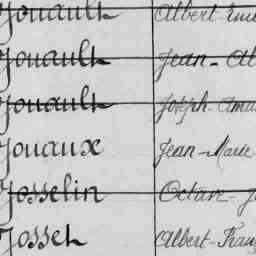 Jouault Albert-Emi
Jouault Jean-Al
Jouault Joseph-Ama
Jouaux Jean-Marie
Josselin Octave-J
Josset Albert-Franç